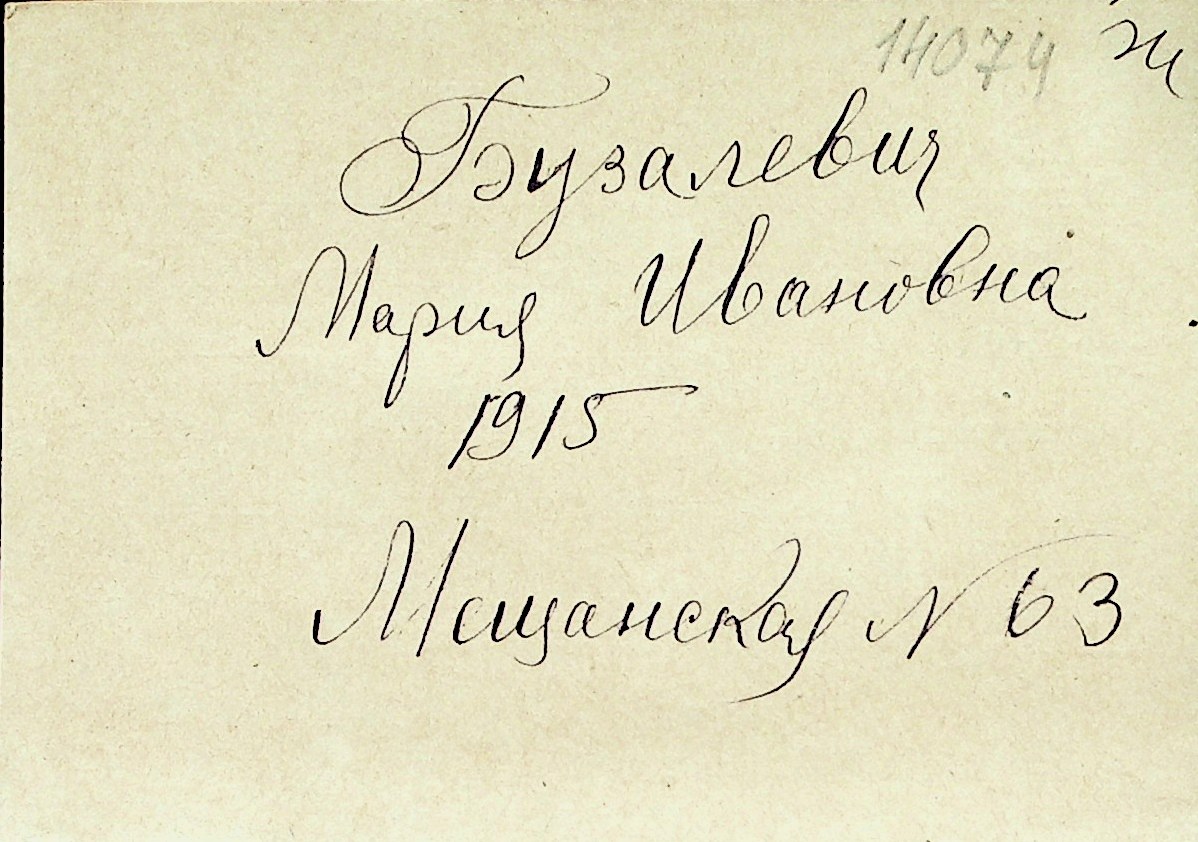 14074 Ж
Бузалевич
Мария Ивановна
1915
Мещанская N 63